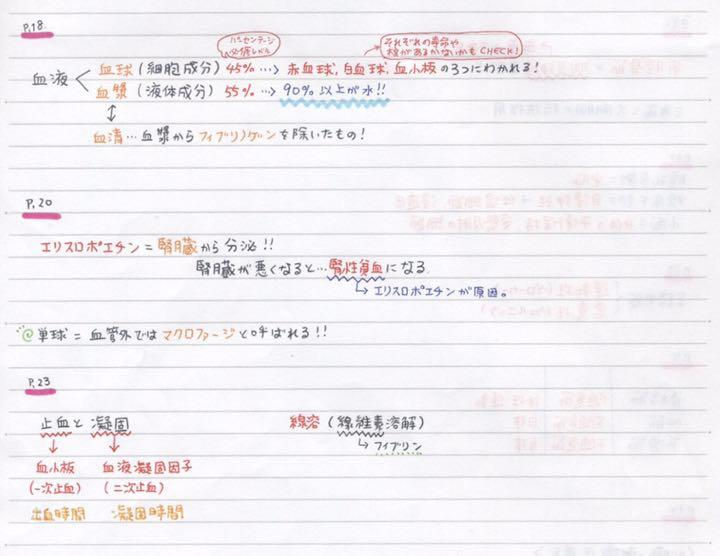 P.18.
パーセンテージ
必修レベル
それぞれの寿命や
核があるかないかもCHECK!
血液
血球(細胞成分) 45% … 赤血球, 白血球, 血小板の3つにわかれる!
血漿(液体成分) 55% … 90%以上が水!!
血清…血漿からフィブリノゲンを除いたもの!
P.20
エリスロポエチン=腎臓から分泌!!
腎臓が悪くなると…腎性貧血になる
エリスロポエチンが原因。
単球=血管外ではマクロファージと呼ばれる!!
P.23
止血と凝固
線溶(線維素溶解)
フィブリン
血小板 血液凝固因子
(一次止血) (二次止血)
出血時間 凝固時間